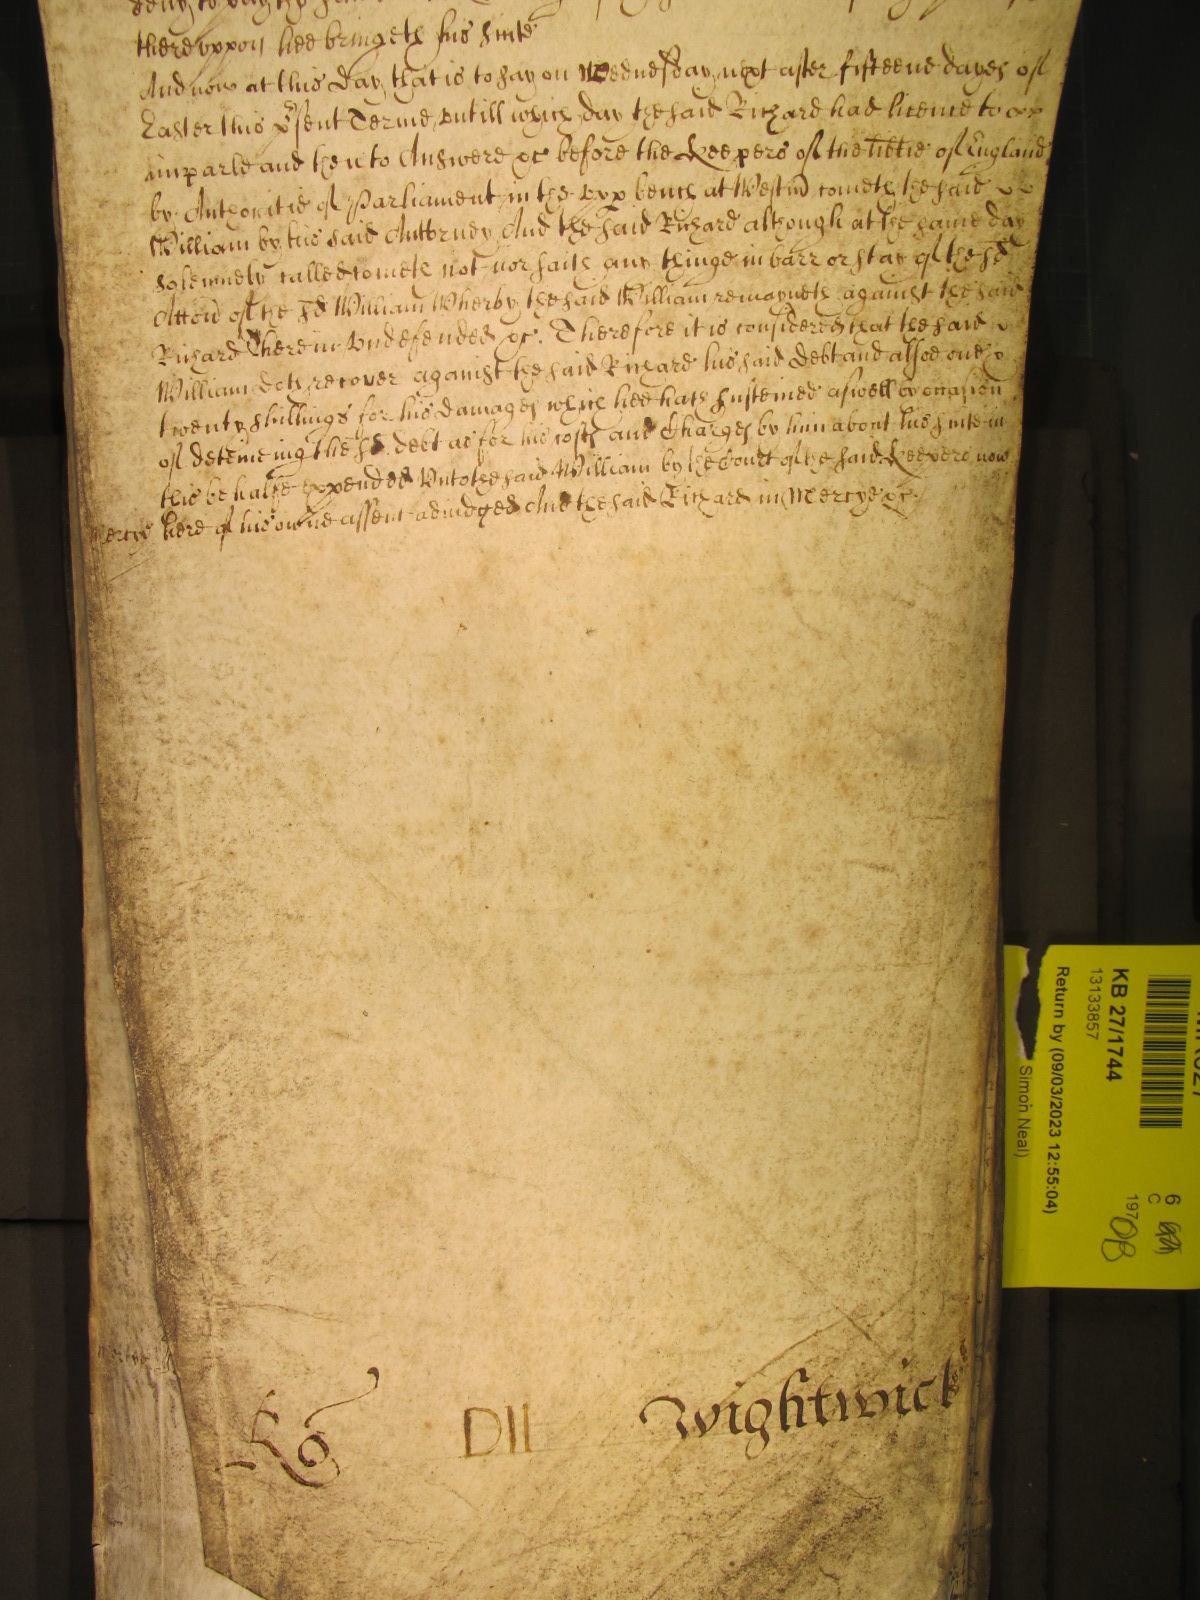 thereuppon hee bringeth his suite
And now at this day that is to say on Wednesday next after fifteene dayes of
Easter this p'sent Terme untill which day the said Richard had licence to
imparle and then to Answere &c before the Keepers of the lib'tie of England
by Authoritie of Parliament in the upp bench at Westm cometh the said
William by his said Attorney And the said Richard although at the same day
solemnely called cometh not nor saith any thinge in barr or stay of the sd
Accon of the sd William Wherby the said William remayneth against the said
Richard therein undefended &c. Therefore it is considered that the said
William doth recover against the said Richard his said debt and alsoe one &
twenty shillings for his damages which hee hath susteined aswell by occasion
of deteineing the sd debt as for his costs and Charges by him about his suite in
this behalfe expended Unto the said William by the Court of the said Keepers now
Mercye here of his owne assent adiudged And the said Richard in Mercye &c
Ro DII Wightwick
KB 27/1744
13133857
Return by (09/03/2023 12:55:04)
Simon Neal)
6
C
197